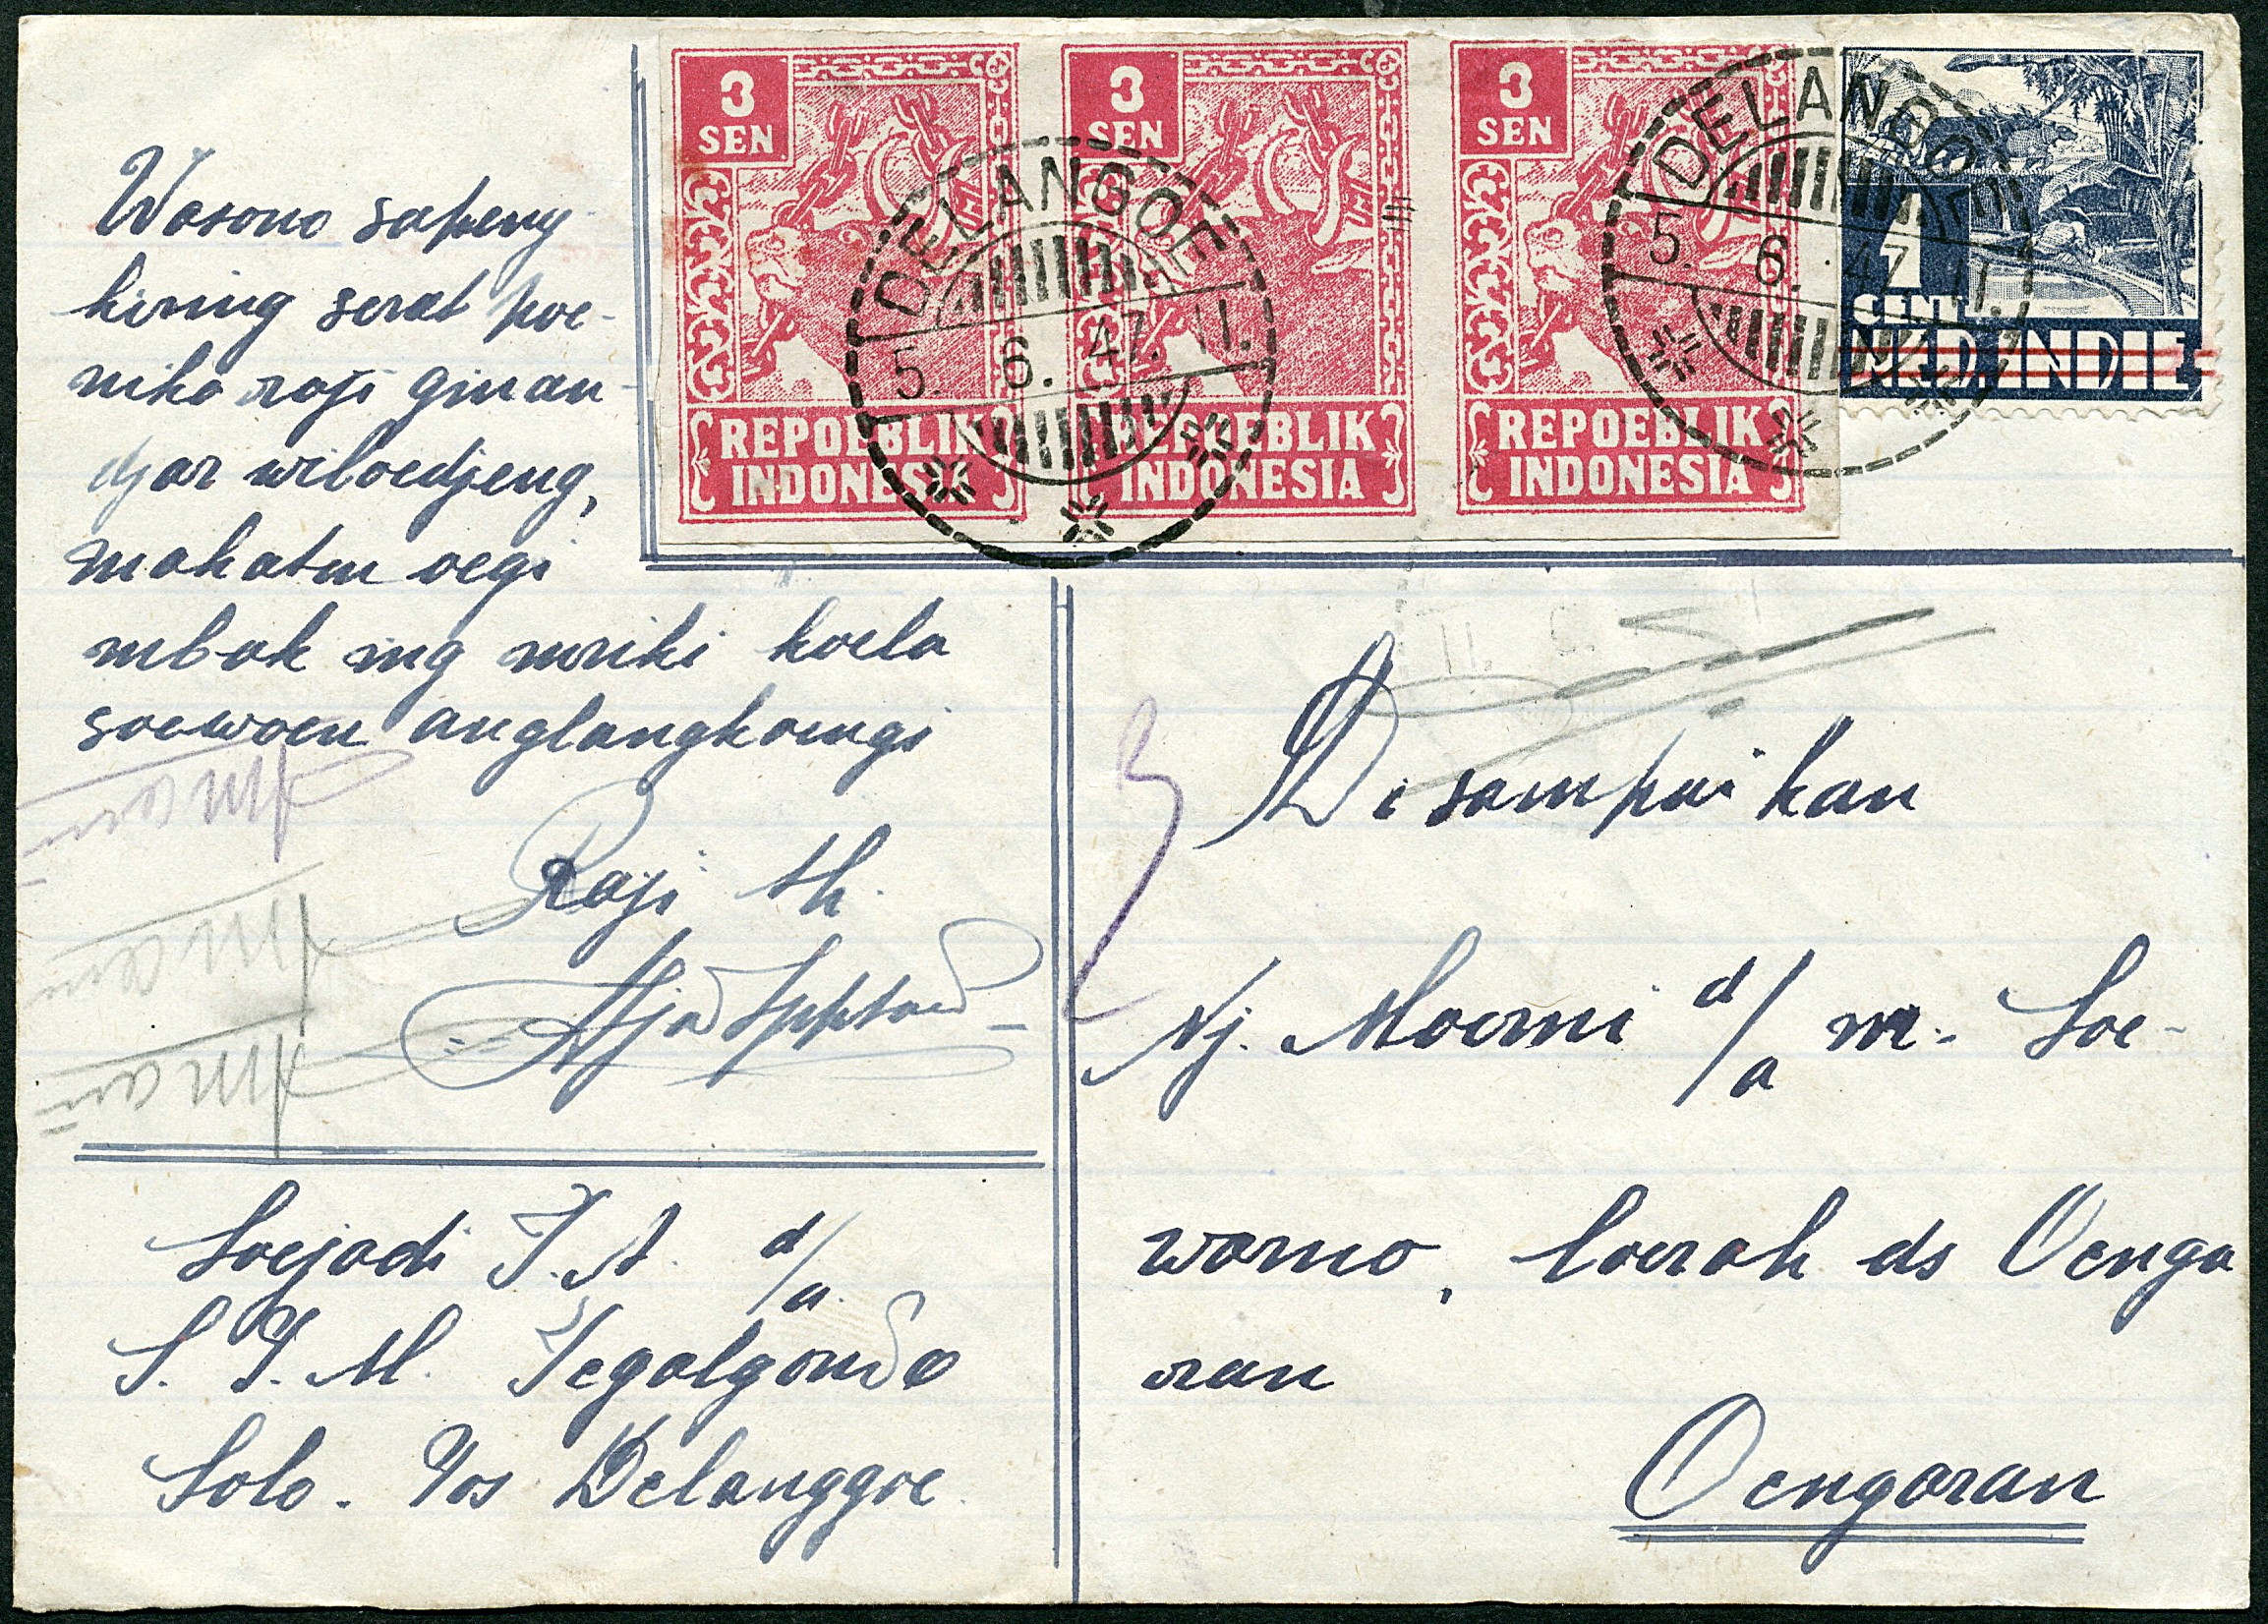 3
SEN
REPOEBLIK
INDONESIA
3
SEN
REPOEBLIK
INDONESIA
3
SEN
REPOEBLIK
INDONESIA
1
CENT
NED. INDIE
DELANGOE
5. 6. 47. 11.
DELANGOE
5. 6. 47. 11.
Wosono sapeng-
kering serat poe-
niko raji ginan-
djar wiloedjeng,
mahaten oegi
mbok ing mriki koela
soewoen anglangkoengi
Raji th.
Soejadi T. A. d/a.
S. T. M. Tegalgondo
Solo. Pos Delanggoe.
Disampaikan
Nj. Moerni d/a m. Soe-
warno, loerah ds Oenga
ran
Oengaran